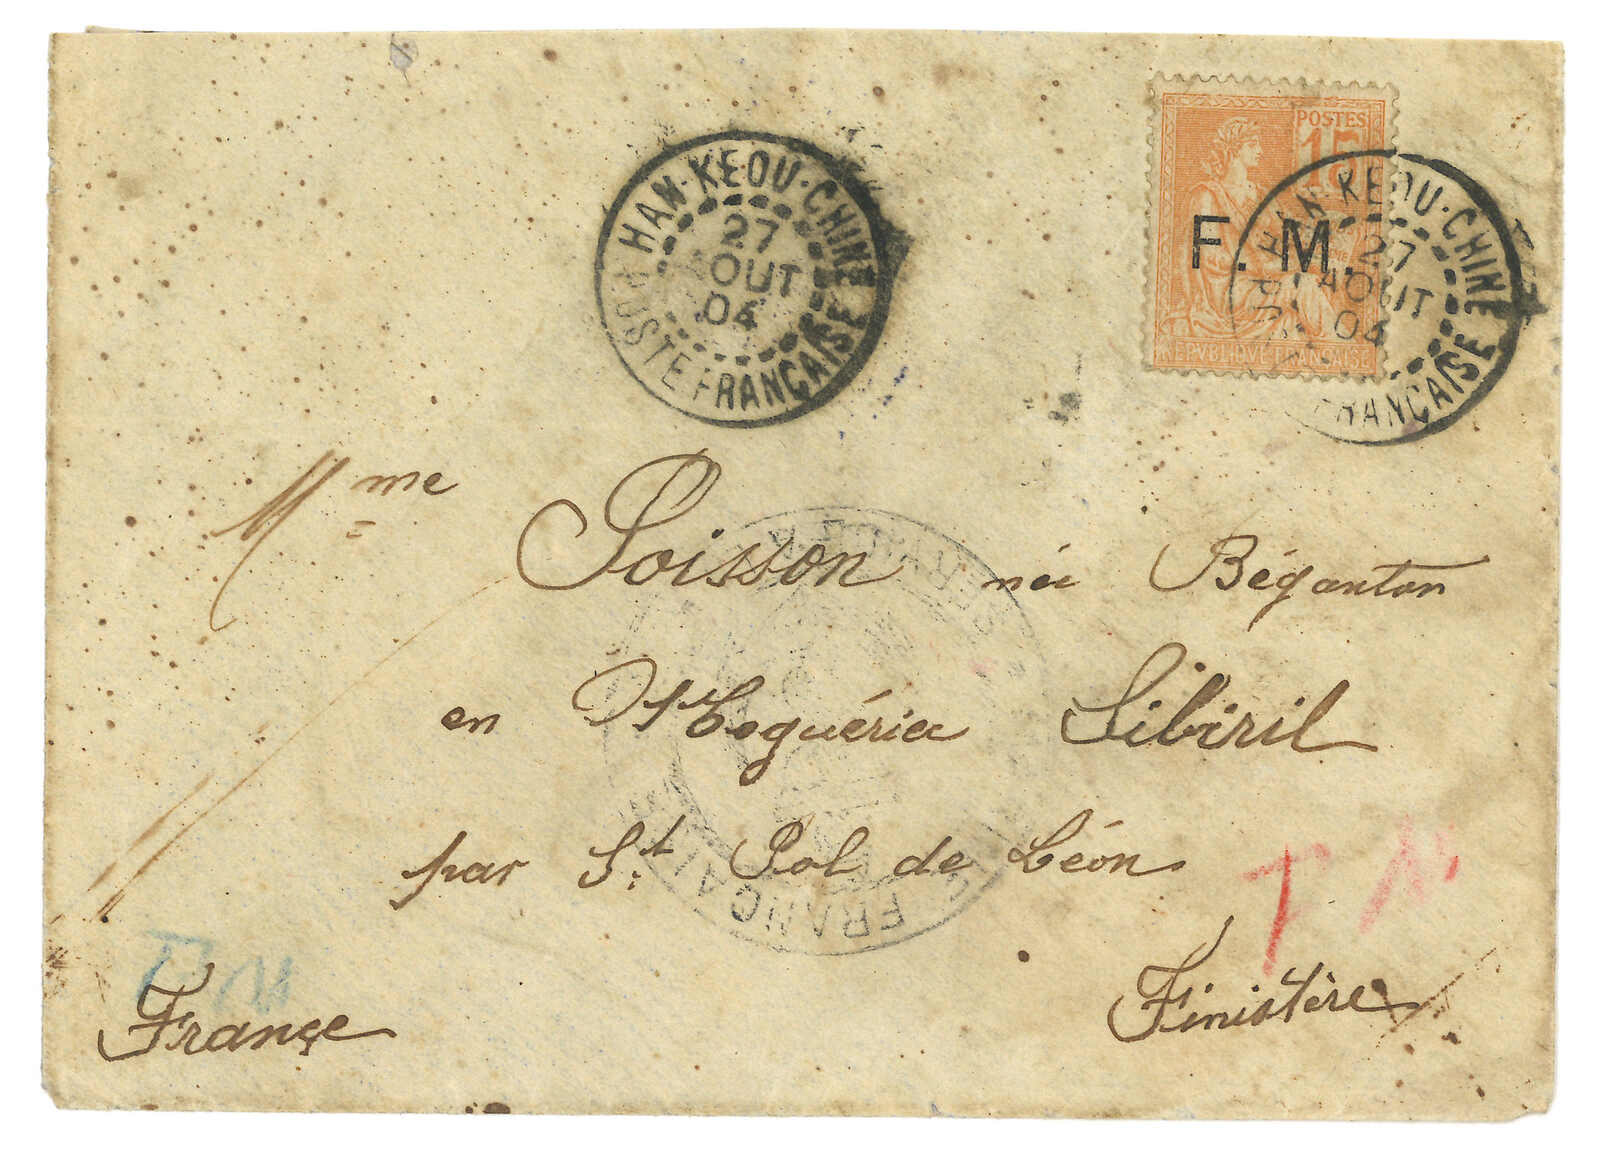 HAN-KEOU-CHINE
27
AOUT
04
POSTE FRANÇAISE
POSTES
15
F. M.
REPVBLIQVE FRANÇAISE
HAN-KEOU-CHINE
27
AOUT
04
FRANÇAISE
Mme Poisson née Béganton
en Sibiril
par St. Pol de Léon
Finistère
France
FRANÇAI